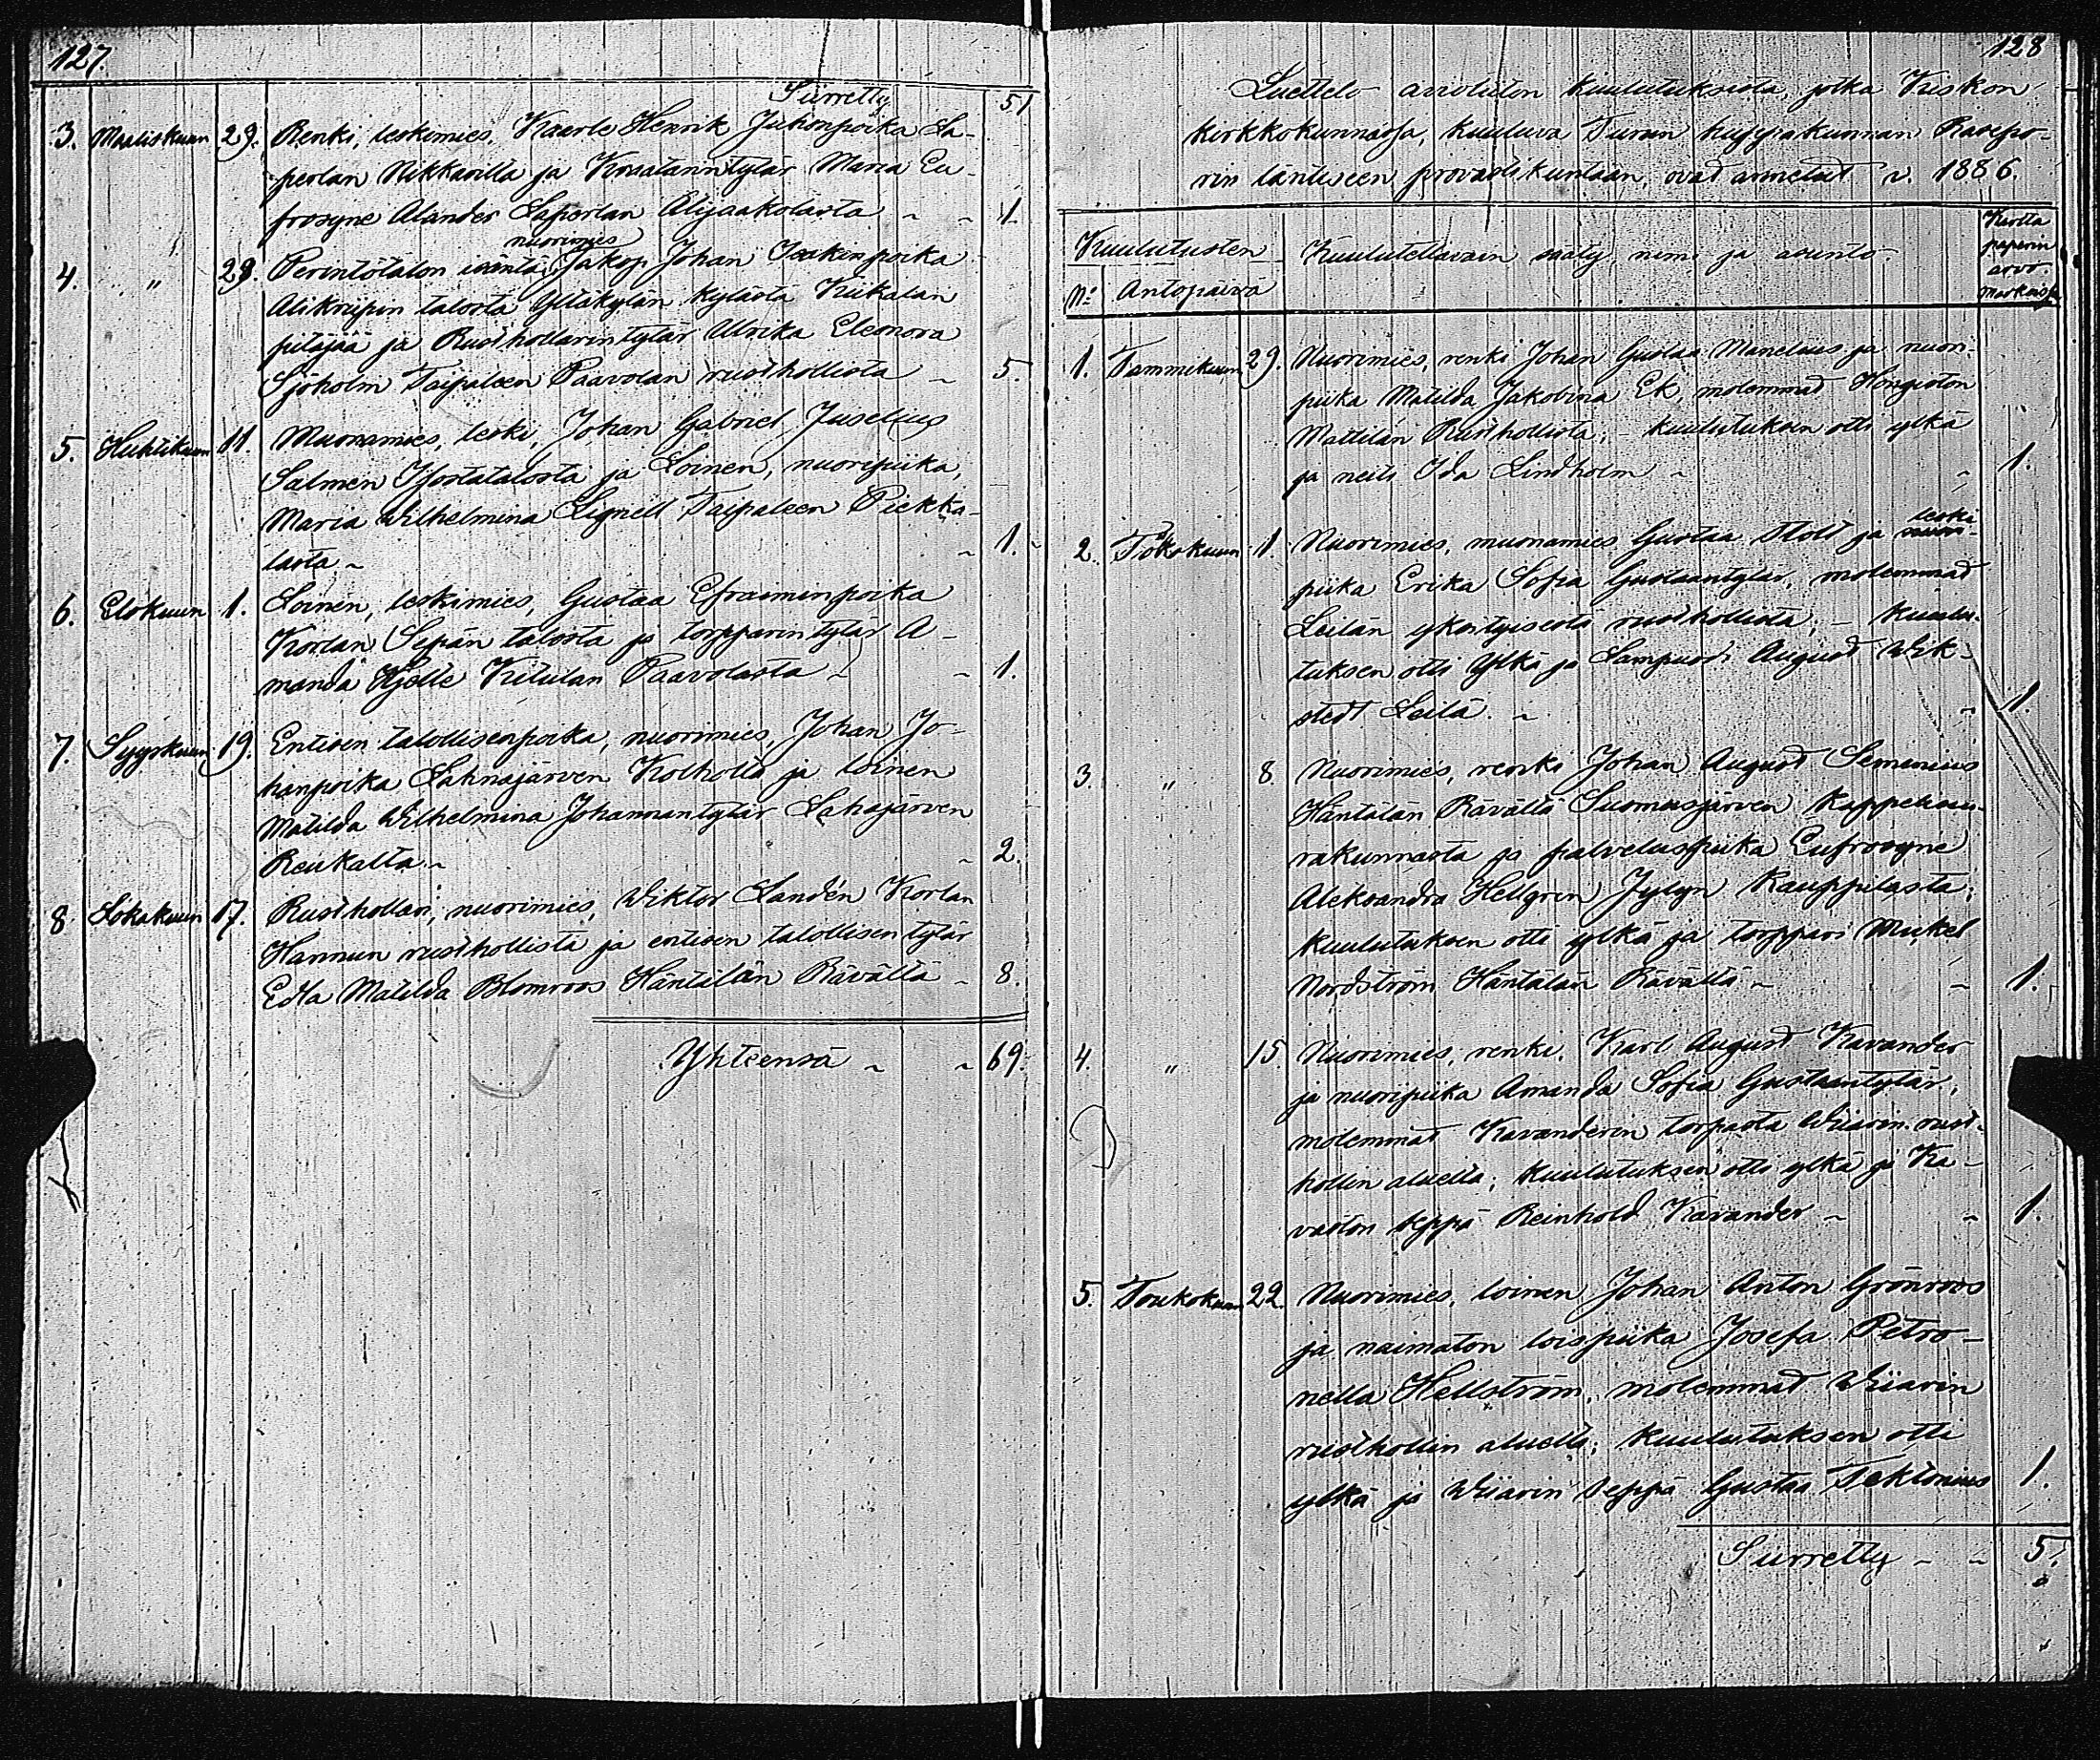 127.
Siirretty 51
3. Maaliskuun 29. Renki, leskimies, Kaarle Henrik Juhonpoika La-
perlan Nikkarilla ja Kraatarintytär Maria Eu-
frosyne Alander Laperlan Alijaakolasta 1
nuorimies
4. " 28. Perintötalon isäntä, Jakop Johan Isakinpoika
Alikriipin talosta Yltäkylän kylästä Kiikalan
pitäjää ja Rusthollarintytär Ulrika Eleonora
Sjöholm Taipaleen Paavolan rusthollista 5.
5. Huhtikuun 11. Muonamies, leski, Johan Gabriel Juselius
Salmen Ylostalosta ja Loinen, nuoripiika,
Maria Wilhelmina Lignell Taipaleen Piekka-
lasta 1.
6. Elokuun 1. Loinen, leskimies, Gustaa Efraiminpoika
Korlan Sepän talosta ja torpparintytär A-
manda Hjelte Kitulan Paavolasta 1.
7. Syyskuun 19. Entisen talollisenpoika, nuorimies, Johan Jo-
hanpoika Lahnajärven Kolholta ja loinen
Matilda Wilhelmina Johannantytär Lahnajärven
Reukalta 2.
8. Lokakuun 17. Rusthollari, nuorimies, Wiktor Landén Korlan
Hannun rusthollista ja entisen talollisentytär
Edla Matilda Blomroos Häntälän Rävältä 8.
Yhteensä 69.
128
Luettelo avioliiton kuulutuksista, jotka Kiskon
kirkkokunnassa, kuuluva Turun hiippakunnan Rasepo-
rin läntiseen provastikuntaan, ovat annetut v. 1886.
Kuulutusten Kuulutettavain sääty, nimi ja asunto. Kartta
paperin
arvo.
Markoissa
No Antopäivä
1. Tammikuun 29. Nuorimies, renki Johan Gustaa Manelius ja nuori-
piika Matilda Jakobina Ek, molemmat Hongiston
Mattilan Rusthollista; - kuulutuksen otti ylkä
ja neiti Ida Lindholm 1.
leski
2. Toukokuun 1. Nuorimies, muonamies Gustaa Stolt ja nuori-
piika Erika Sofia Gustaantytär, molemmat
Leilän yksityisestä rusthollista, - kuulu-
tuksen otti Ylkä ja Lampuodi August Wik-
stedt Leilä. 1.
3. " 8 Nuorimies, renki Johan August Semenius
Häntälän Rävältä Suomusjärven kappeliseu-
rakunnasta ja palveluspiika Eufrosyne
Aleksandra Hellgren Jylyn Kauppilasta;
kuulutuksen otti ylkä ja torppari Mickel
Nordström Häntälän Rävältä 1.
4. " 15 Nuorimies, renki, Karl August Kavander
ja nuoripiika Amanda Sofia Gustaantytär,
molemmat Kavanderin torpasta Wiiarin rust-
hollin alueella; kuulutuksen otti ylkä ja Ka-
vaston seppä Reinhold Kavander 1.
5. Toukokuun 22. Nuorimies, loinen Johan Anton Grönroos
ja naimaton loispiika Josefa Petro-
nella Hellström, molemmat Wiiarin
rusthollin aluella; kuulutuksen otti
ylkä ja Wiiarin seppä Gustaa Tektonius 1.
Siirretty 5.